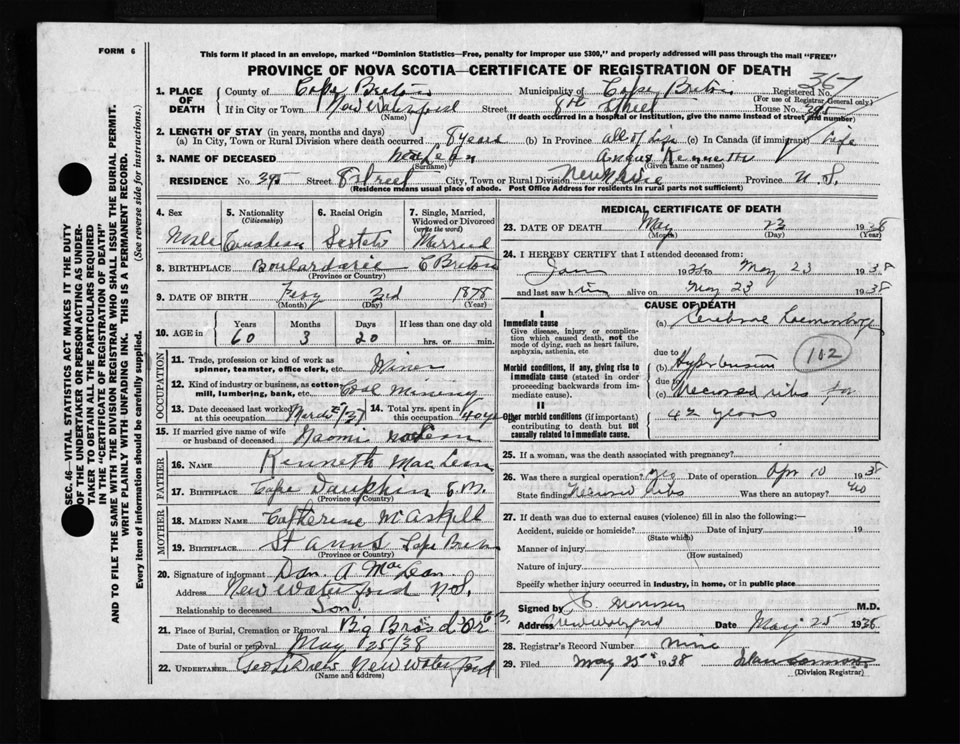 FORM 6
This form if placed in an envelope, marked "Dominion Statistics—Free, penalty for improper use $300," and properly addressed will pass through the mail "FREE"
PROVINCE OF NOVA SCOTIA—CERTIFICATE OF REGISTRATION OF DEATH
367
1. PLACE OF DEATH
County of Cape Breton Municipality of Cape Breton Registered No.
(For use of Registrar General only)
If in City or Town New Waterford Street 8th Street House No. 395
(Name) (If death occurred in a hospital or institution, give the name instead of street and number)
2. LENGTH OF STAY (in years, months and days)
(a) In City, Town or Rural Division where death occurred 8 years (b) In Province all of Life (c) In Canada (if immigrant) Life
3. NAME OF DECEASED Angus Kenneth
(Surname) (Given name or names)
RESIDENCE No. 395 Street 8 Street City, Town or Rural Division Province N.S.
(Residence means usual place of abode. Post Office Address for residents in rural parts not sufficient)
4. Sex Male
5. Nationality (Citizenship) Canadian
6. Racial Origin
7. Single, Married, Widowed or Divorced (write the word) Married
8. BIRTHPLACE Boulardarie C Breton
(Province or Country)
9. DATE OF BIRTH 2nd 1878
(Month) (Day) (Year)
10. AGE in Years Months Days If less than one day old
60 3 20 hrs. or min.
OCCUPATION
11. Trade, profession or kind of work as spinner, teamster, office clerk, etc. Miner
12. Kind of industry or business, as cotton mill, lumbering, bank, etc. Coal Mining
13. Date deceased last worked at this occupation
14. Total yrs. spent in this occupation 40 yrs
15. If married give name of wife or husband of deceased Naomi MacLean
FATHER
16. NAME Kenneth MacLean
17. BIRTHPLACE Cape Dauphin C.B.
(Province or Country)
MOTHER
18. MAIDEN NAME Catherine McAskill
19. BIRTHPLACE St Anns Cape Breton
(Province or Country)
20. Signature of informant Dan A MacLean
Address New Waterford N.S.
Relationship to deceased Son
21. Place of Burial, Cremation or Removal Big Bras d'Or C.B.
Date of burial or removal May 25/38
22. UNDERTAKER New Waterford
(Name and address)
MEDICAL CERTIFICATE OF DEATH
23. DATE OF DEATH May 23 1938
(Month) (Day) (Year)
24. I HEREBY CERTIFY that I attended deceased from:
Jan 19 to May 23 1938
and last saw him alive on May 23 1938
CAUSE OF DEATH
I
Immediate cause
Give disease, injury or complication which caused death, not the mode of dying, such as heart failure, asphyxia, asthenia, etc
(a) Cerebral Haemorrhage
due to
Morbid conditions, if any, giving rise to immediate cause (stated in order proceeding backwards from immediate cause).
(b) Hypertension
102
due to
(c) ribs for
42 years
II
Other morbid conditions (if important) contributing to death but not causally related to immediate cause.
25. If a woman, was the death associated with pregnancy?
26. Was there a surgical operation? yes Date of operation Apr 10 1938
State finding ribs Was there an autopsy? No
27. If death was due to external causes (violence) fill in also the following:—
Accident, suicide or homicide? Date of injury 19
(State which)
Manner of injury
(How sustained)
Nature of injury
Specify whether injury occurred in industry, in home, or in public place
Signed by M.D.
Address New Waterford Date May 25 1938
28. Registrar's Record Number
29. Filed May 25 1938
(Division Registrar)
SEC. 46—VITAL STATISTICS ACT MAKES IT THE DUTY OF THE UNDERTAKER OR PERSON ACTING AS UNDERTAKER TO OBTAIN ALL THE PARTICULARS REQUIRED IN THE "CERTIFICATE OF REGISTRATION OF DEATH" AND TO FILE THE SAME WITH THE DIVISION REGISTRAR WHO SHALL ISSUE THE BURIAL PERMIT.
WRITE PLAINLY WITH UNFADING INK. THIS IS A PERMANENT RECORD.
Every item of information should be carefully supplied. (See reverse side for instructions.)